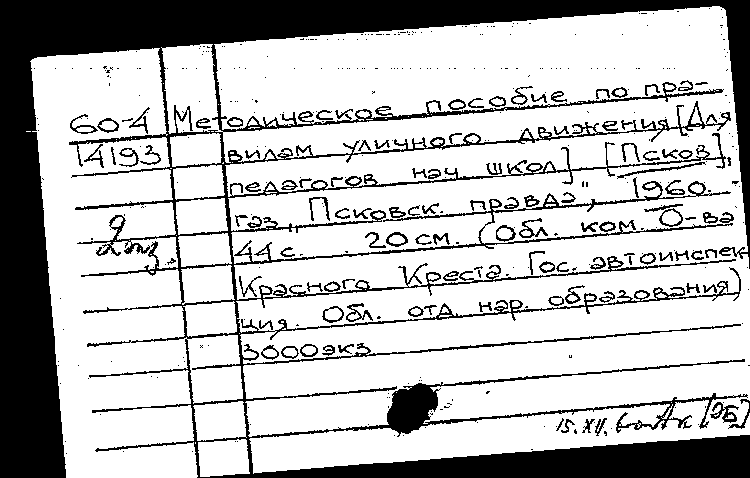 60-4 Методическое пособие по пра-
14193 вилам уличного движения [Для
педагогов нач. школ] [Псков],
газ. „Псковск. правда", 1960. -
2 экз. 44 с. 20 см. (Обл. ком. О-ва
Красного Креста. Гос. автоинспек
ция. Обл. отд. нар. образования)
3000 экз
15.XII.60